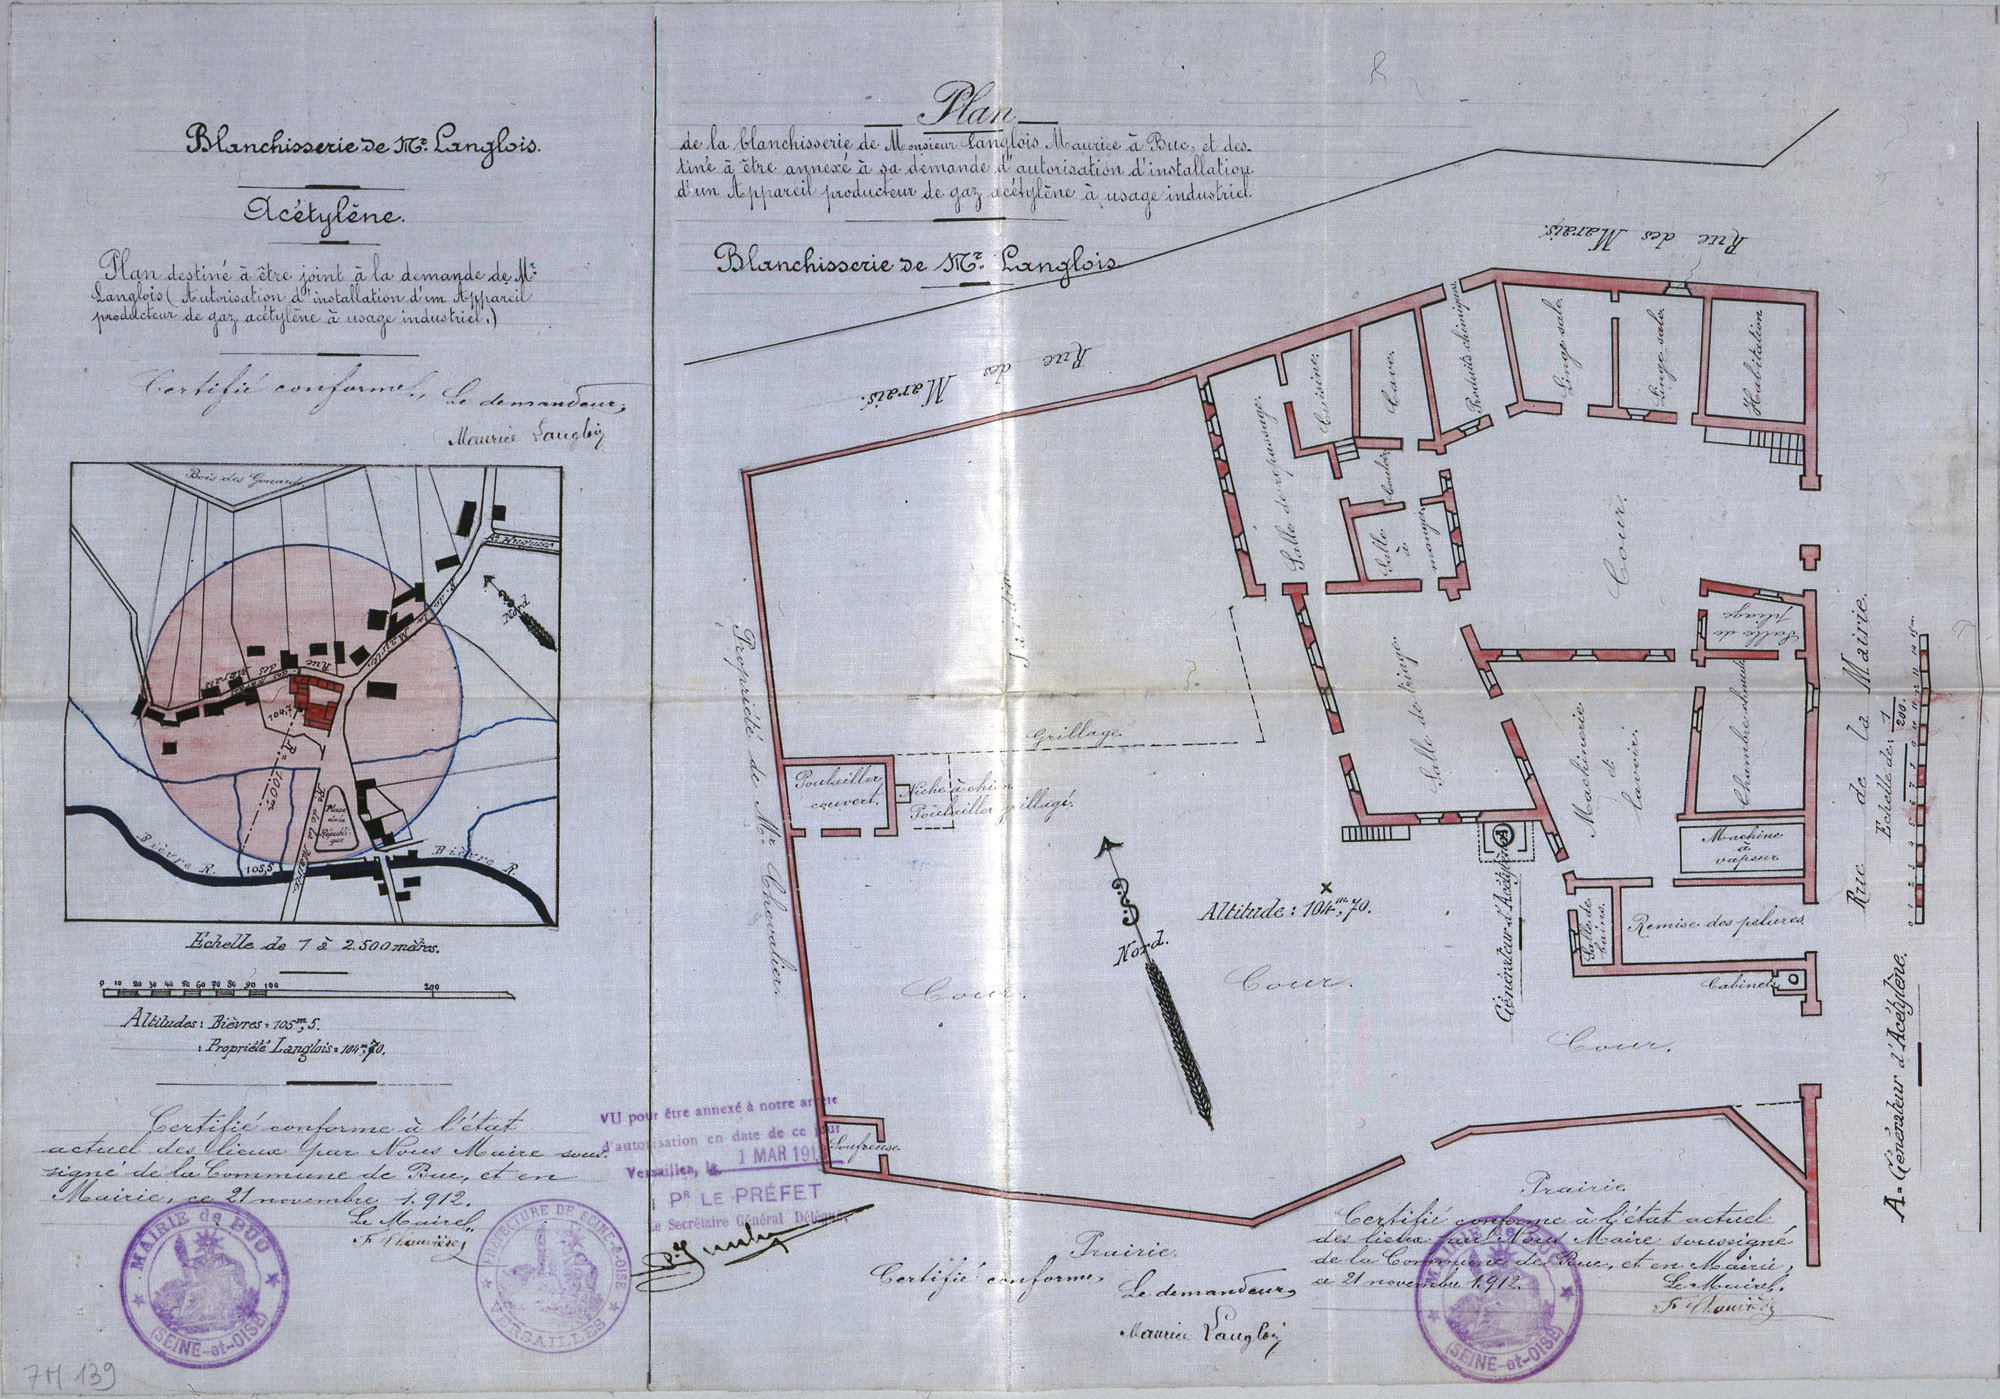 Blanchisserie de Mr. Langlois.
Acétylène.
Plan destiné à être joint à la demande de Mr
Langlois (Autorisation d'installation d'un Appareil
producteur de gaz acétylène à usage industriel.)
Certifié conforme,
Le demandeur,
Maurice Langlois
Bois des Gonards
Re Huguier
R. de la Mairie.
Nord
Rue des Marais
104,7
R = 100m
Place de la République
Re de la Mairie.
Bièvre R.
105,5
Bièvre R.
Echelle de 1 à 2.500 mètres.
0 10 20 30 40 50 60 70 80 90 100 200
Altitudes: Bièvres = 105m,5.
: Propriété Langlois = 104m,70.
Certifié conforme à l'état
actuel des lieux par Nous Maire sous-
signé de la Commune de Buc, et en
Mairie, ce 21 novembre 1.912.
Le Maire,
MAIRIE de BUC
(SEINE-et-OISE)
PRÉFECTURE DE SEINE-&-OISE
VERSAILLES
7M 139
VU pour être annexé à notre arrêté
d'autorisation en date de ce jour
Versailles, le 1 MAR 191
Pr LE PRÉFET
Le Secrétaire Général Délégué,
Plan
de la blanchisserie de Monsieur Langlois Maurice à Buc, et des-
tiné à être annexé à sa demande d'autorisation d'installation
d'un Appareil producteur de gaz acétylène à usage industriel.
Blanchisserie de Mr. Langlois.
Rue des Marais.
Rue des Marais.
Salle de repassage.
Cuisine.
Cave.
Produits chimiques.
Linge sale.
Linge sale.
Habitation
Couloir
Salle à manger.
Cour.
Salle de pliage
Salle de triage.
Machinerie et lavoir.
Chambre chaude
Machine à vapeur.
Remise des pelures.
Salle de bains.
Cabinets
Générateur d'Acétylène
A
Grillage
Poulailler couvert.
Niche à chien
Poulailler grillagé.
Propriété de Mr. Chevalier.
Altitude: 104m,70.
Nord.
Cour.
Cour.
Cour.
Soufreuse.
Prairie.
Prairie.
Rue de la Mairie.
Echelle de: 1/200.
A = Générateur d'Acétylène.
Certifié conforme,
Le demandeur,
Maurice Langlois
Certifié conforme à l'état actuel
des lieux par Nous Maire soussigné
de la Commune de Buc, et en Mairie,
ce 21 novembre 1.912.
Le Maire,
MAIRIE de BUC
(SEINE-et-OISE)